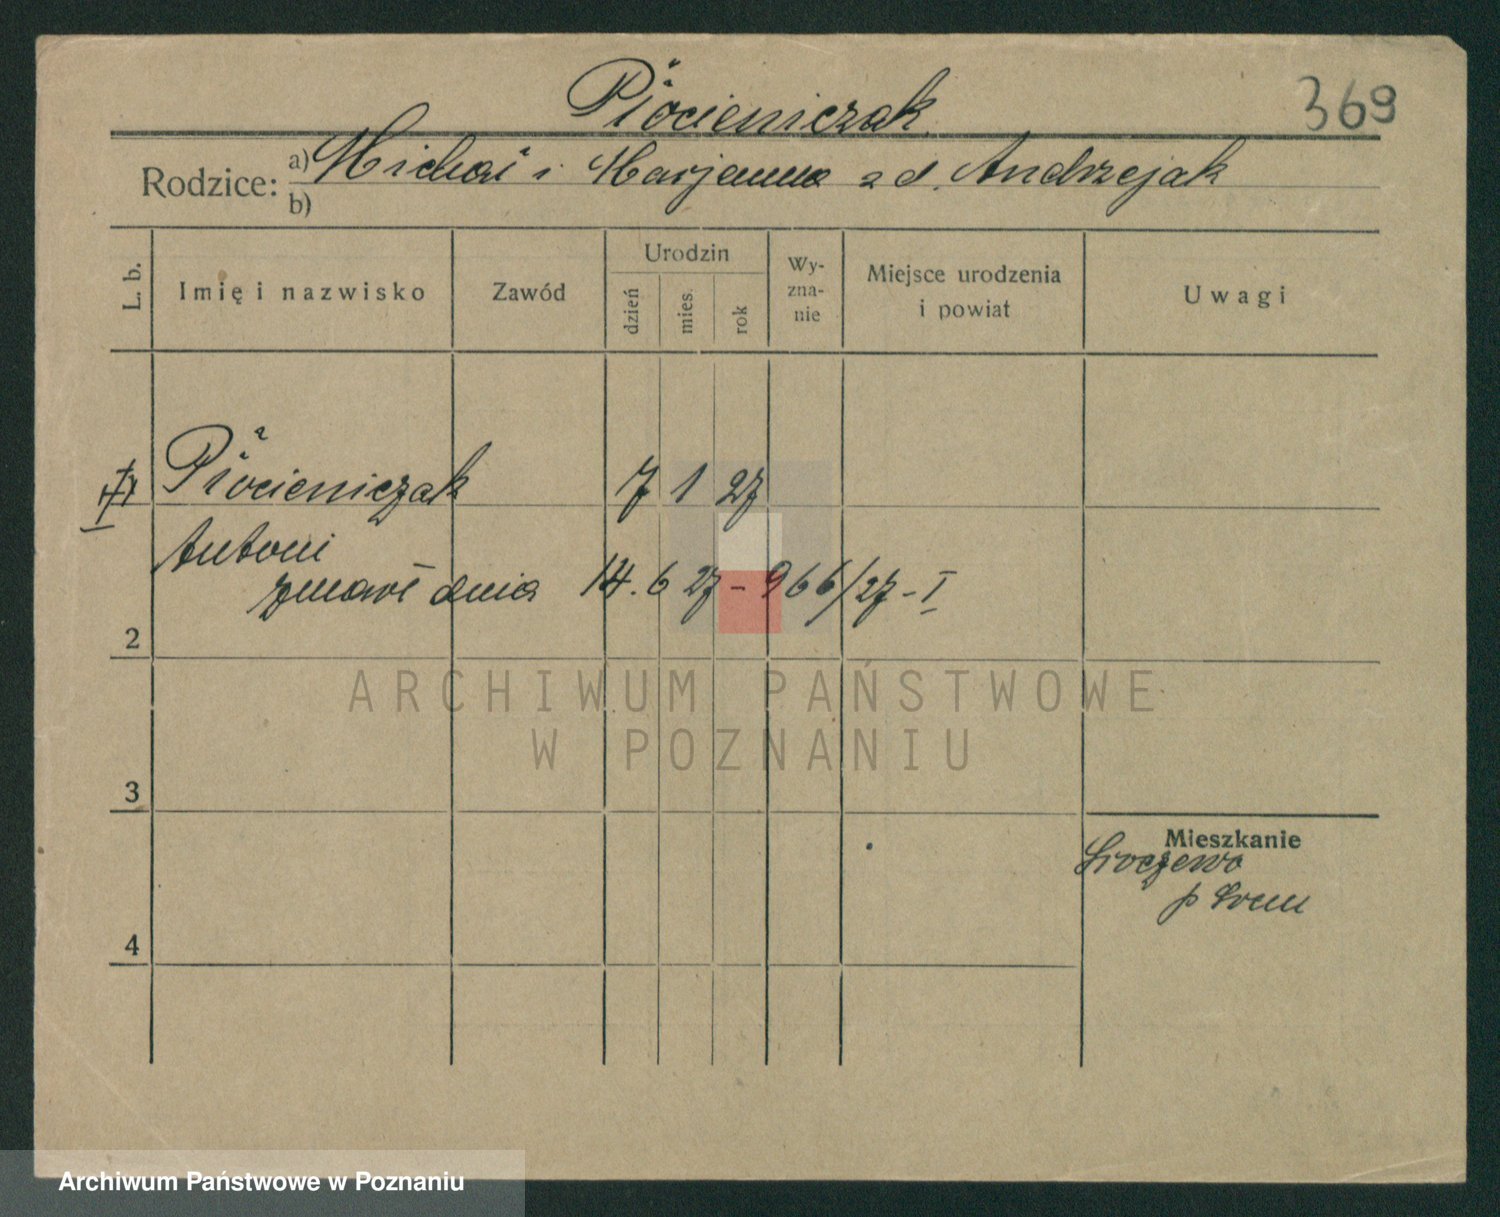 Płócieniczak
369
Rodzice: a) Michał i Marjanna zd. Andrzejak
b)
L. b.
Imię i nazwisko
Zawód
Urodzin
dzień
mies.
rok
Wy-
zna-
nie
Miejsce urodzenia
i powiat
Uwagi
Płócieniczak 7 1 27
Antoni
zmarł dnia 14. 6 27 - 966/27 - I
2
ARCHIWUM PAŃSTWOWE
W POZNANIU
3
Mieszkanie
p Śrem
4
Archiwum Państwowe w Poznaniu